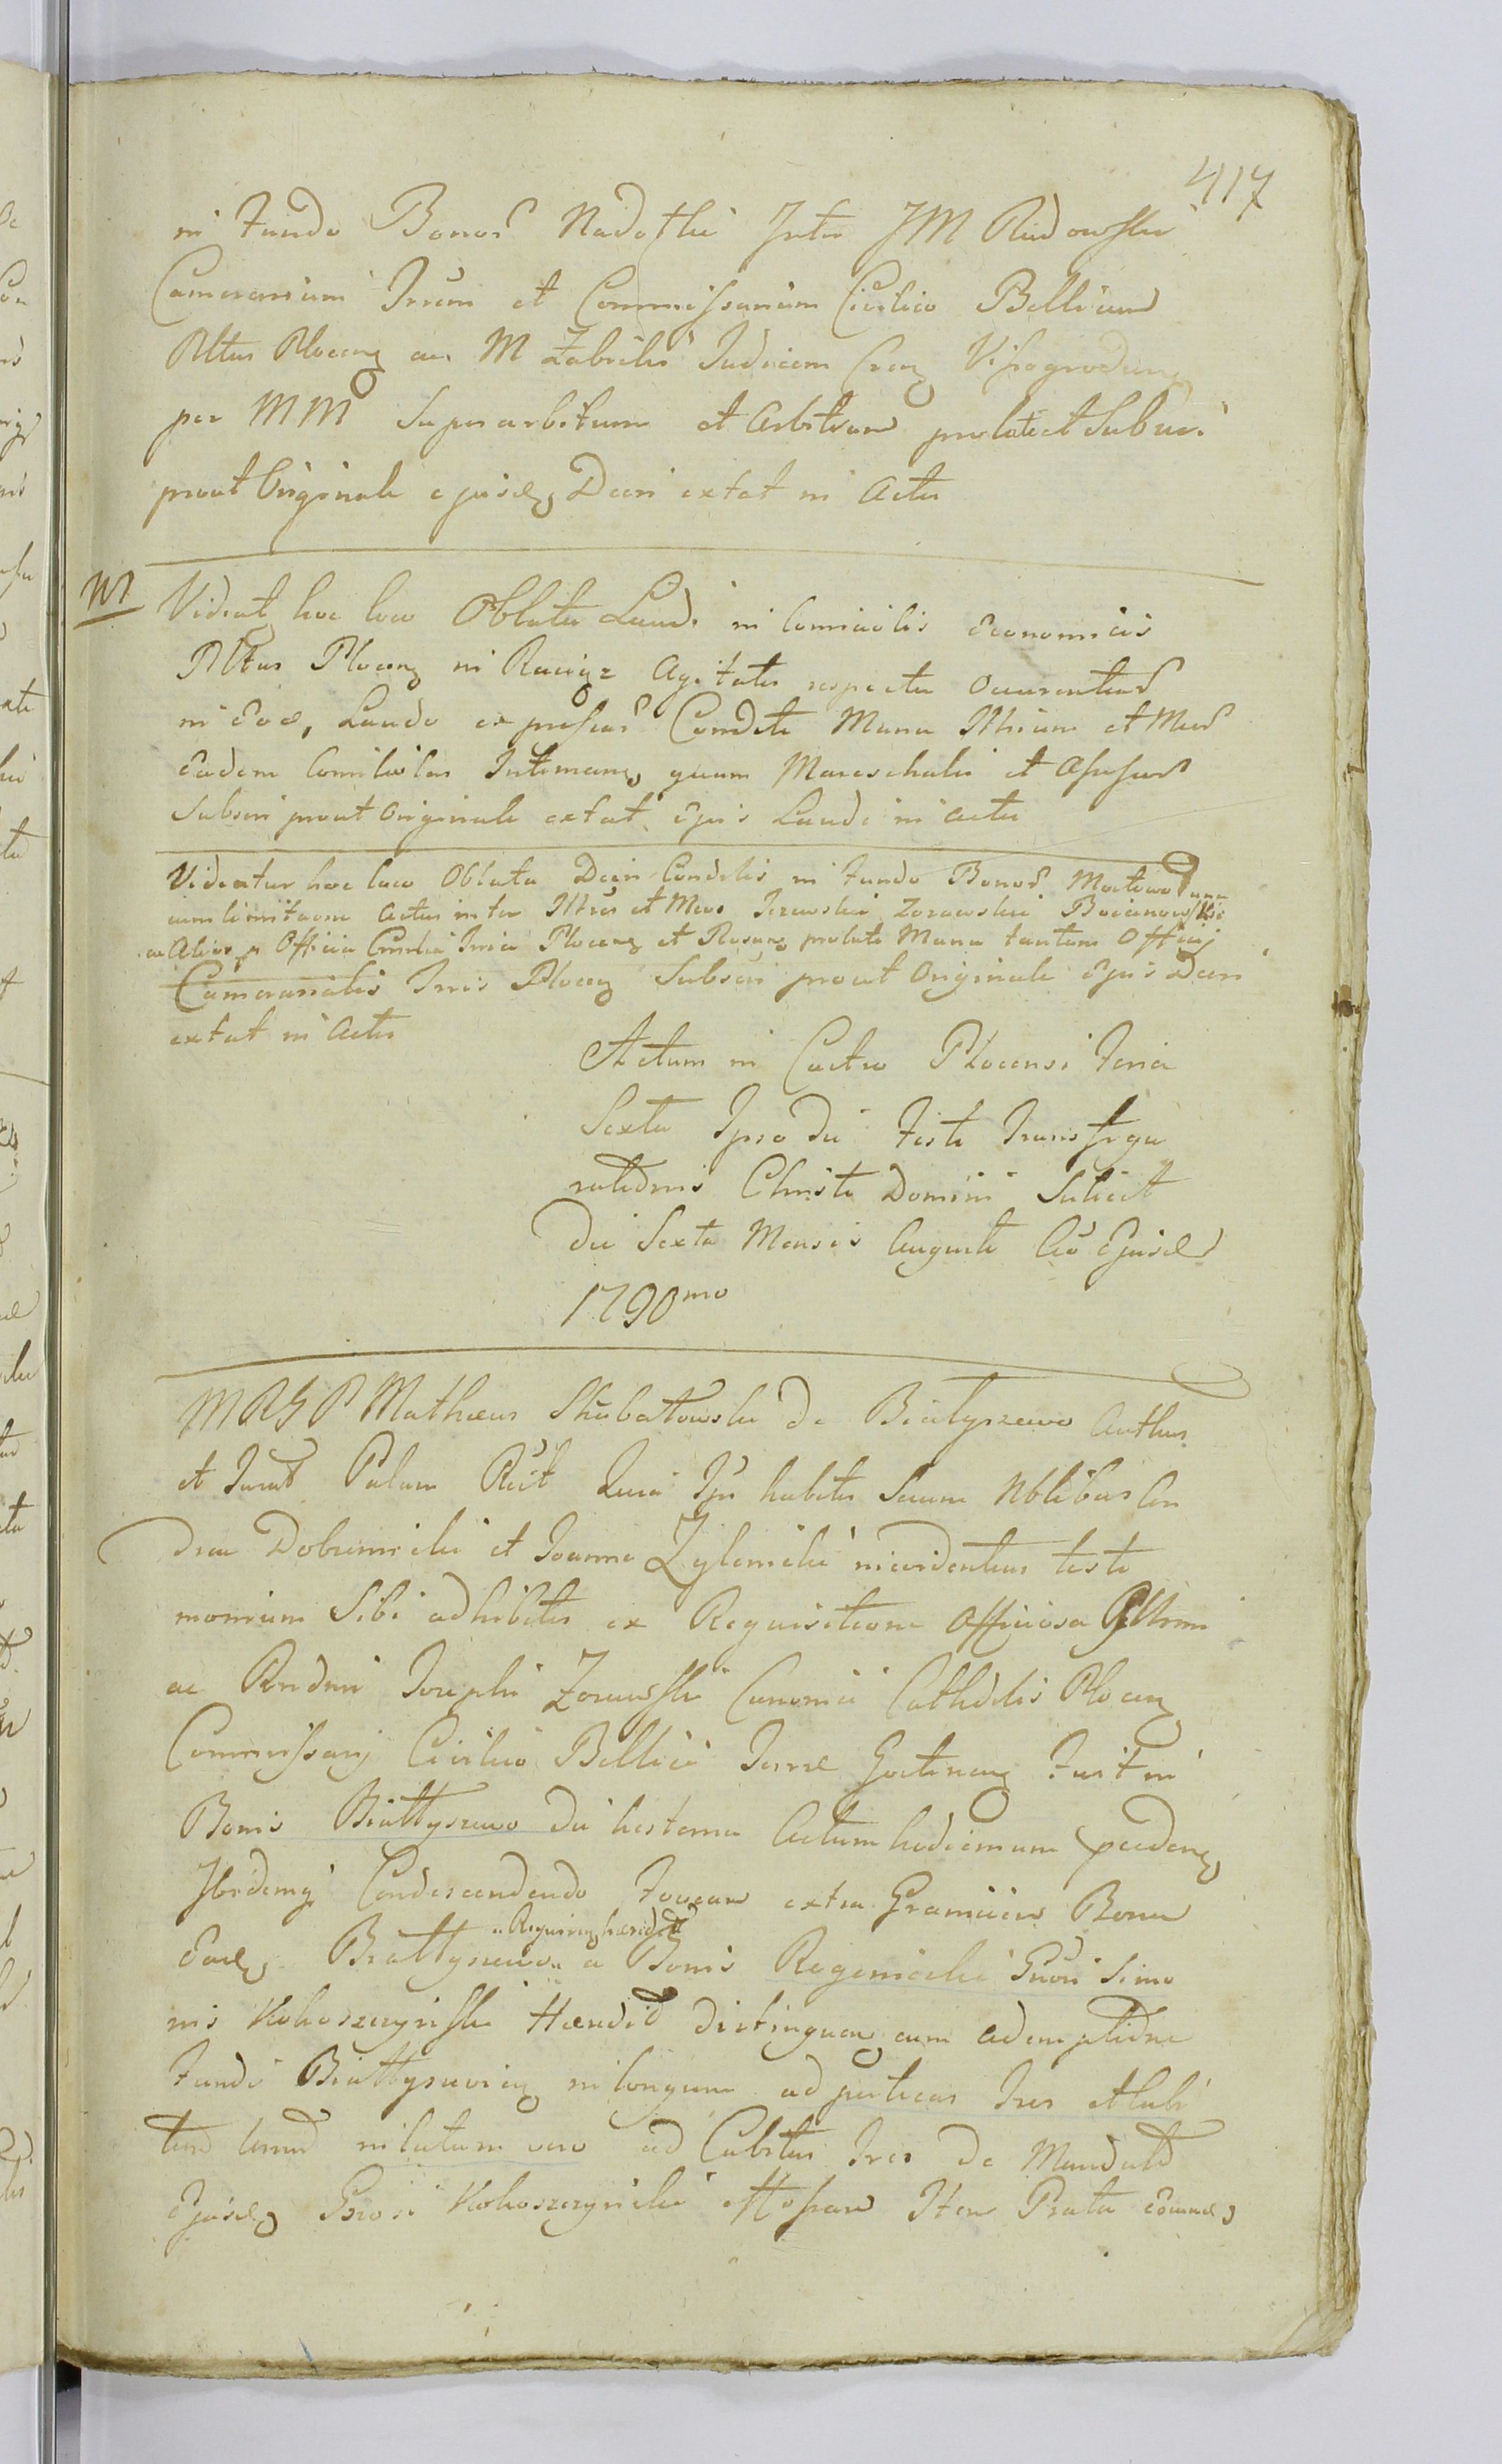 417
in Fundo Bonor Nadotki Inter JM Rudowski
Camerarium Trrem et Commissarium Civilico Bellicum
Pltus Plocens ac M Zabicki Judicem Crens Visogrodiens
per MM Superarbitrum et Arbitros prolati et Subscri
prout Originale ejusd Decri extat in Actis
NB Videat hoc loco Oblata Laudi in Comiciolis Economicis
Pltus Plocens in Raciąz Agitatis respectu Occurentium
in Eod, Laudo expressar Conditi Manu Illrium et Mcor
Eadem Comiciolar Intimans quam Mareschalis et Assessor
Subscri prout Originale extat Ejus Laudi in Actis
Videatur hoc loco Oblata Decri Condlis in Fundo Bonor Moctowo una
cum limitaone Actus inter Illres et Mcos Jezewskie Zorawskie Bocianowskie
ac Alios p Officia Crnlia Trria Plocens et Rosans prolati Manu tantum Officij
Camerarialis Trris Plocens Subscri prout Originale Ejus Decri
extat in Actis
Actum in Castro Plocensi Feria
Sexta Ipso die Festi Transfigu
rationis Christi Domini Scilicet
die Sexta Mensis Augusti Ao Ejusd
1790mo
MRGP Mathæus Skubatowski de Bialyszewo Authus
et Jurat Palam Rcit Quia Ipse habitis Secum Nblibus An
drea Dobrzinicki et Joanne Zylinicki in evidentius testi
monium Sibi adhibitis ex Requisitione Officiosa Pllrmi
ac Rndmi Josephi Zorawski Canonici Cathdlis Plocens
Commissarij Civilico Bellici Terræ Gostinens Fuit in
Bonis Bialtyszewo die hesterna Actum hodiernum pcedens
Ibidemq Condescendendo Foveam extra Granicies Bona
Ead Bialtyszewo a Bonis Rogienicki Gnosi Simo
" Requirens hæredit
nis Kokoszczynski Hæredit distinguens cum ademptione
Fundi Bialtyszeviens in longum ad perticas Tres et Cubi
tum Unum in latum vero ad Cubitus Tres de Mandato
Ejusd Gnosi Kokoszczynicki effossam Item Prata